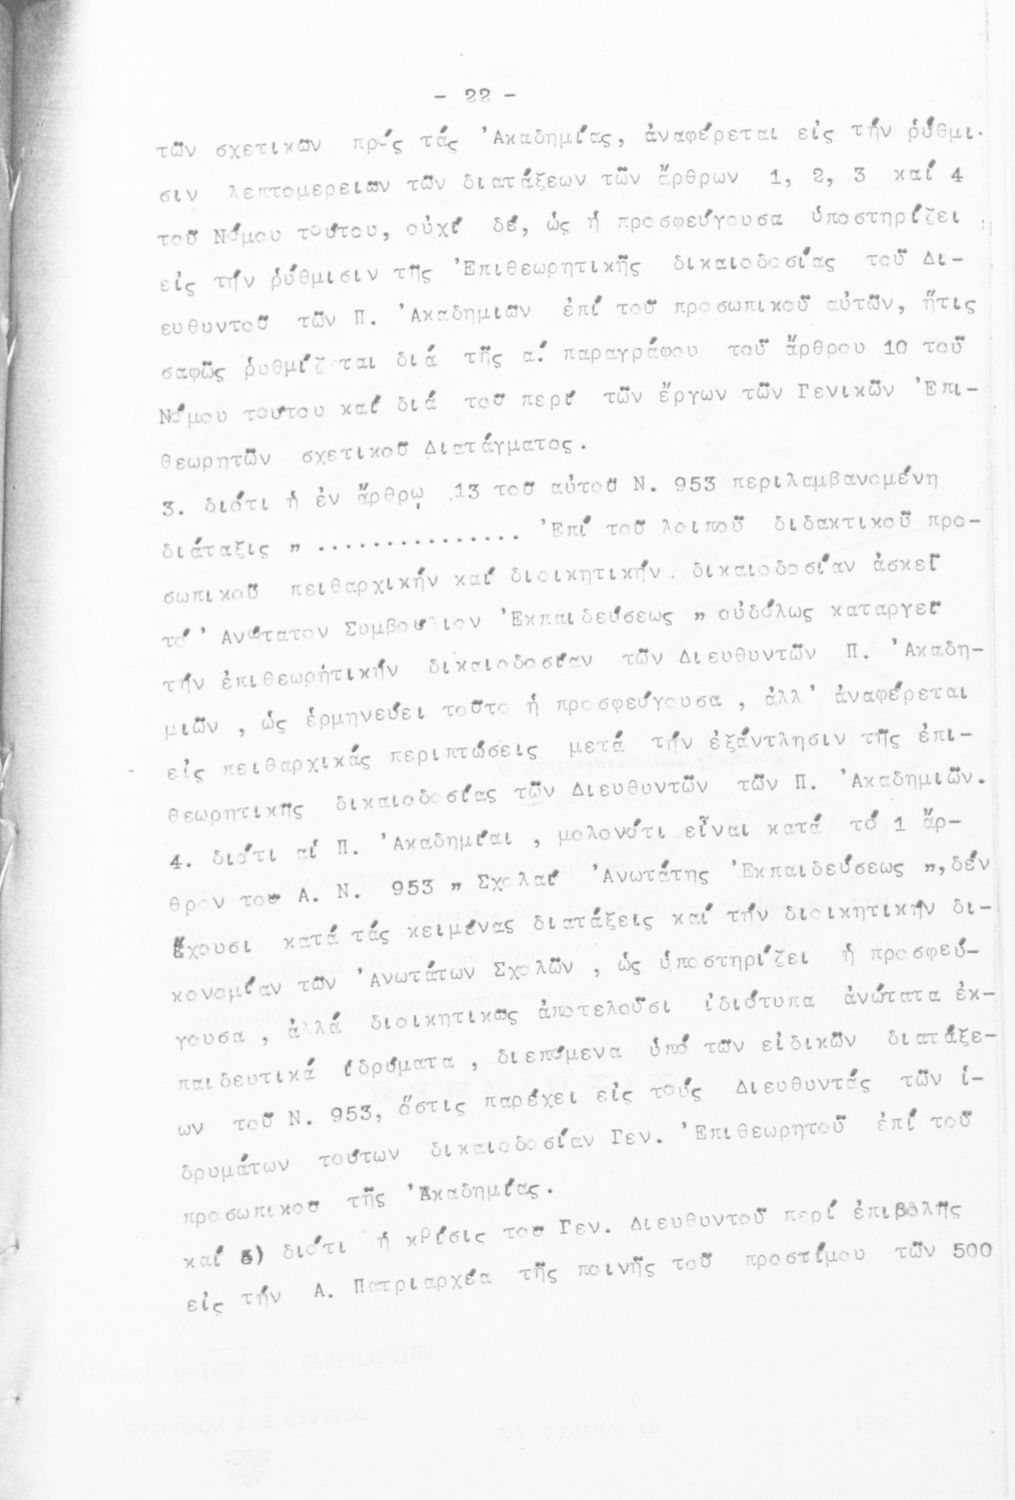 - 22 -
τῶν σχετικῶν πρός τάς 'Ακαδημίας, ἀναφέρεται εἰς τήν ῥύθμι-
σιν λεπτομερειῶν τῶν διατάξεων τῶν ἄρθρων 1, 2, 3 καί 4
τοῦ Νόμου τούτου, οὐχί δέ, ὡς ἡ προσφεύγουσα ὑποστηρίζει
εἰς τήν ῥύθμισιν τῆς 'Επιθεωρητικῆς δικαιοδοσίας τοῦ Δι-
ευθυντοῦ τῶν Π. 'Ακαδημιῶν ἐπί τοῦ προσωπικοῦ αὐτῶν, ἥτις
σαφῶς ῥυθμίζεται διά τῆς α΄ παραγράφου τοῦ ἄρθρου 10 τοῦ
Νόμου τούτου καί διά τοῦ περί τῶν ἔργων τῶν Γενικῶν 'Επι-
θεωρητῶν σχετικοῦ Διατάγματος.
3. διότι ἡ ἐν ἄρθρῳ 13 τοῦ αὐτοῦ Ν. 953 περιλαμβανομένη
διάταξις " ............... 'Επί τοῦ λοιποῦ διδακτικοῦ προ-
σωπικοῦ πειθαρχικήν καί διοικητικήν. δικαιοδοσίαν ἀσκεῖ
τό 'Ανώτατον Συμβούλιον 'Εκπαιδεύσεως " οὐδόλως καταργεῖ
τήν ἐπιθεωρήτικήν δικαιοδοσίαν τῶν Διευθυντῶν Π. 'Ακαδη-
μιῶν , ὡς ἑρμηνεύει τοῦτο ἡ προσφεύγουσα , ἀλλ' ἀναφέρεται
εἰς πειθαρχικάς περιπτώσεις μετά τήν ἐξάντλησιν τῆς ἐπι-
θεωρητικῆς δικαιοδοσίας τῶν Διευθυντῶν τῶν Π. 'Ακαδημιῶν.
4. διότι αἱ Π. 'Ακαδημίαι , μολονότι εἶναι κατά τό 1 ἄρ-
θρον τοῦ Α. Ν. 953 " Σχολαί 'Ανωτάτης 'Εκπαιδεύσεως ",δέν
ἔχουσι κατά τάς κειμένας διατάξεις καί τήν διοικητικήν δι-
κονομίαν τῶν 'Ανωτάτων Σχολῶν , ὡς ὑποστηρίζει ἡ προσφεύ-
γουσα , ἀλλά διοικητικῶς ἀποτελοῦσι ἰδιότυπα ἀνώτατα ἐκ-
παιδευτικά ἱδρύματα , διεπόμενα ὑπό τῶν εἰδικῶν διατάξε-
ων τοῦ Ν. 953, ὅστις παρέχει εἰς τούς Διευθυντάς τῶν ἱ-
δρυμάτων τούτων δικαιοδοσίαν Γεν. 'Επιθεωρητοῦ ἐπί τοῦ
προσωπικοῦ τῆς 'Ακαδημίας.
καί 5) διότι ἡ κρίσις τοῦ Γεν. Διευθυντοῦ περί ἐπιβολῆς
εἰς τήν Α. Πατριαρχέα τῆς ποινῆς τοῦ προστίμου τῶν 500